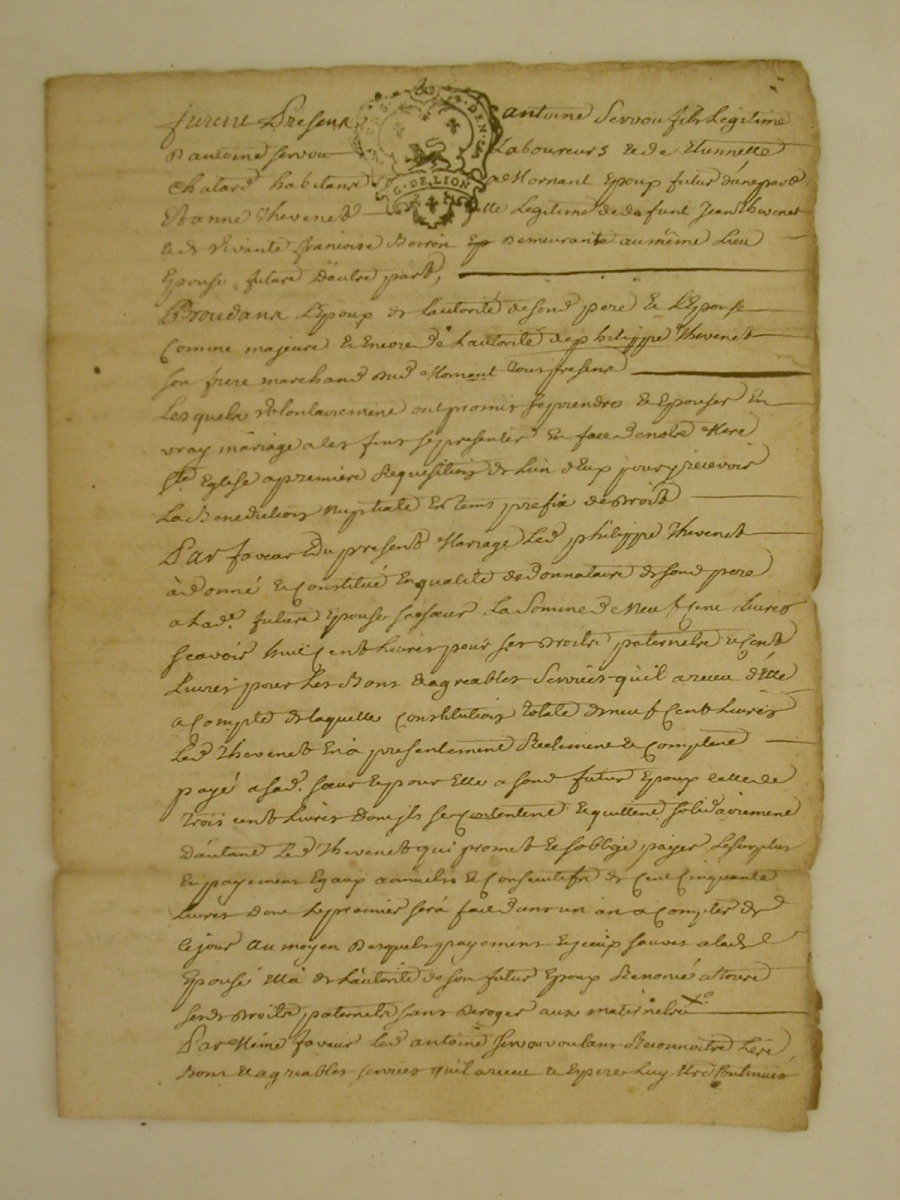 furent Presens antoine Servou fils Legitime
D'antoine Servou Laboureurs & de Etiennette
Chatard habitans a Mornant Epoux futur d'une part
Et anne Thevenet fille Legitime de defunt Jean Thevenet
& de vivante francoise Boiron Demeurante au même Lieu
Epouse future D'autre part,
G. DE LION
Procedans L'epoux de L'autorité de son d. pere & L'Epouse
Comme majeure & Encore de L'autorité de philippe Thevenet
son frere marchand Dud. Mornant tous presens
Lesquels volontairement ont promis se prendre & Epouser En
vray mariage a les fins se presenter En face de notre Mere
Ste Eglise a premiere Requisition de L'un d'Eux pour y recevoir
La Benediction Nuptiale En tems prefix de Droit
Par faveur du present Mariage Led. philippe Thevenet
à donné & Constitué En qualité de donnataire de son d. pere
a lad. future Epouse sa sœur La Somme de Neuf Cent Livres
scavoir huit Cent Livres pour ses Droits paternels & Cent
Livres pour Les Bons & agreables Services qu'il a receu d'Elle
a Compte de laquelle Constitution totale de neuf Cent Livres
Led. Thevenet En a presentement Reelement & Comptant
payé a sad. sœur & pour Elle a son d. futur Epoux celle de
trois cent Livres Dont ils se Contentent & quittent solidairement
D'autant Led. Thevenet qui promet & s'oblige payer Le surplus
En payement Egaux annuels & Consecutifs de Cent Cinquante
Livres Dont Le premier sera fait Dans un an a Compter de
ce jour au moyen Desquels payement & iceux sauves a lad.
Epouse Elle a de L'autorité de son futur Epoux Renoncé a tous
sesd. Droits paternels sans Deroger aux maternels
Par Même faveur Led. antoine Servou voulant Reconnoitre Les
Bons & agreables services qu'il a receu & Espere Luy Etre Continués